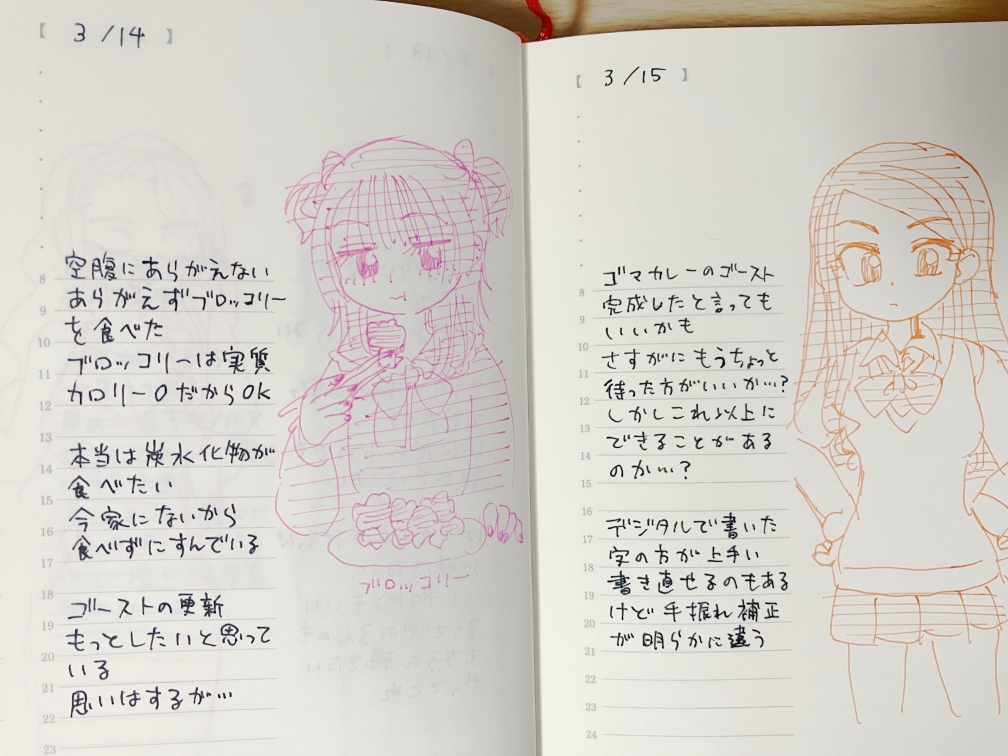 【 3/14 】
8
9
10
11
12
13
14
15
16
17
18
19
20
21
22
23
空腹にあらがえない
あらがえずブロッコリー
を食べた
ブロッコリーは実質
カロリー0だからOK
本当は炭水化物が
食べたい
今家にないから
食べずにすんでいる
ゴーストの更新
もっとしたいと思って
いる
思いはするが…
ブロッコリー
【 3/15 】
8
9
10
11
12
13
14
15
16
17
18
19
20
21
22
23
24
ゴマカレーのゴースト
完成したと言っても
いいかも
さすがにもうちょっと
待った方がいいか…?
しかしこれ以上に
できることがある
のか…?
デジタルで書いた
字の方が上手い
書き直せるのもある
けど手振れ補正
が明らかに違う